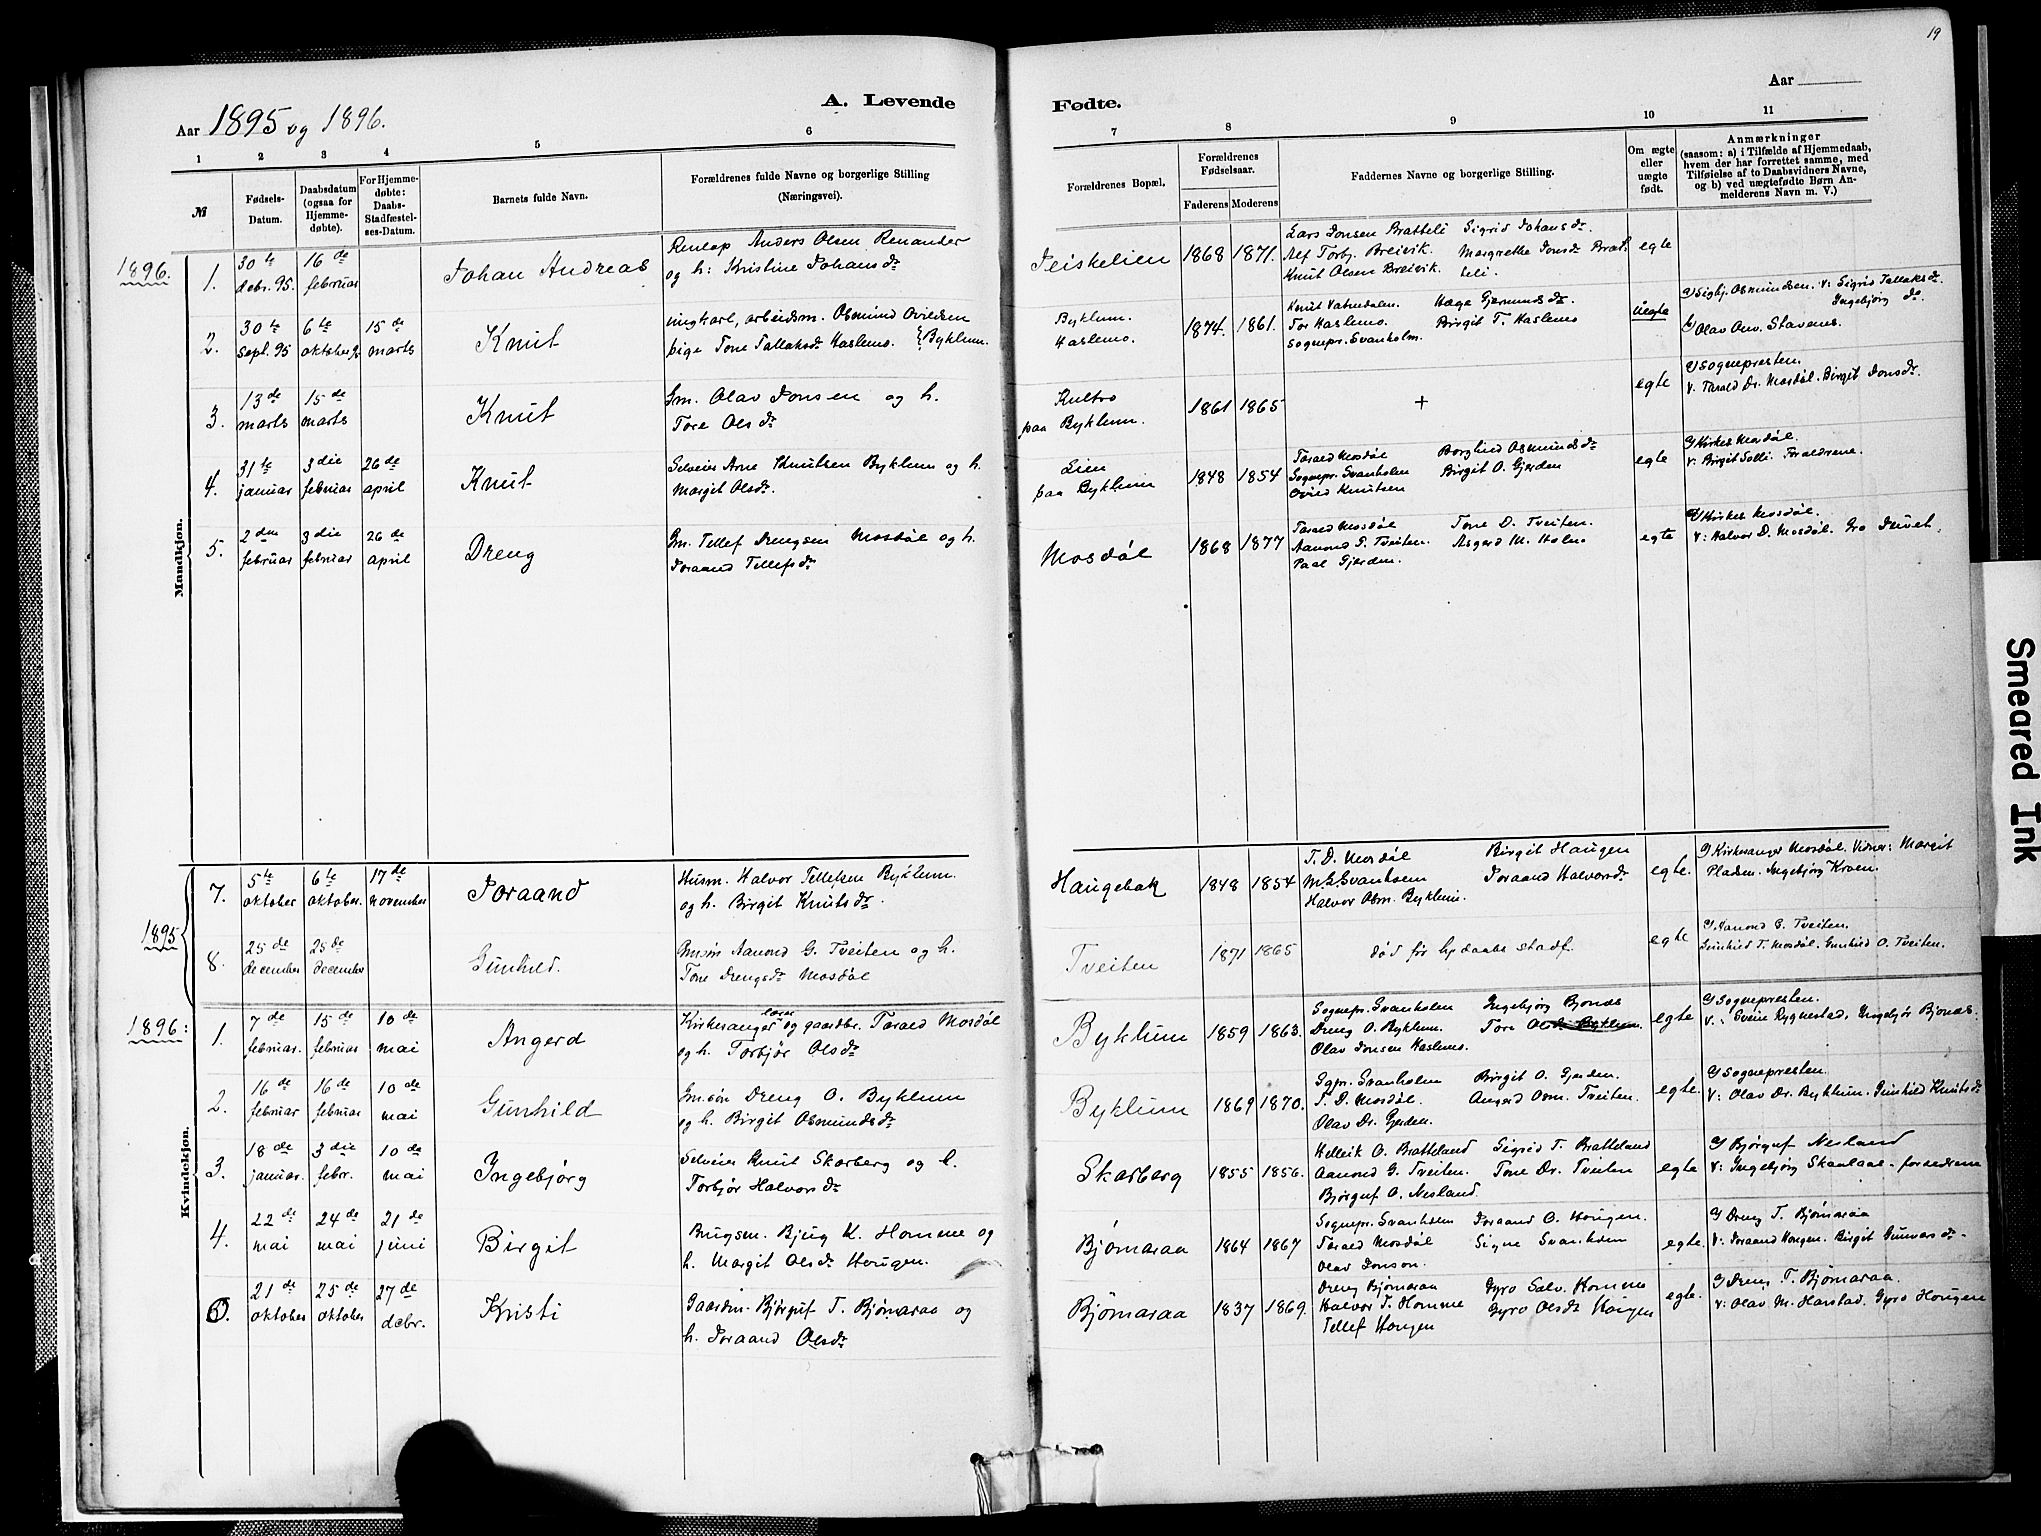 19
Aar 1895 og 1896.
A. Levende
Fødte.
Aar
1 2 3 4 5 6 7 8 9 10 11
№
Fødsels-Datum.
Daabsdatum (ogsaa for Hjemmedøbte).
For Hjemmedøbte: Daabs-Stadfæstelses-Datum.
Barnets fulde Navn.
Forældrenes fulde Navne og borgerlige Stilling (Næringsvei).
Forældrenes Bopæl.
Forældrenes Fødselsaar.
Faderens Moderens
Faddernes Navne og borgerlige Stilling.
Om ægte eller uægte født.
Anmærkninger (saasom: a) i Tilfælde af Hjemmedaab, hvem der har forrettet samme, med Tilføielse af to Daabsvidners Navne, og b) ved uægtefødte Børn Anmelderens Navn m. V.)
Mandkjøn.
1896.
1. 30te debr. 95. 16de februar Johan Andreas
Anders Olsen Renander
og h: Kristine Johansdr
1868 1871.
Lars Jonsen Bratteli Sigrid Johansdr
Alf Torbj. Breivik. Margrethe Jonsdr Brat-
Knut Olsen Breivik. teli.
egte
2. 30te sept. 95 6te oktober 15de marts Knut
ungkarl, arbeidsm. Osmund Ovildsen
pige Tone Tallaksdr Haslemo. } Byklum.
Byklum.
Haslemo.
1874. 1861.
Knut Vatnedalen. Hæge Gjermundsdr.
Tor Haslemo. Birgit T. Haslemo
Sognepr. Svanholm.
uegte
a) Sigbj. Osmundsen. V: Sigrid Tallaksdr.
Ingebjørg dr.
b) Olav Stavenes.
3. 13de marts 15de marts Knut
Gm. Olav Jonsen og h.
Tore Olsdr
paa Byklum.
1861 1865
+
egte
a) Sognepresten.
V. Tarald Dr. Mosdøl. Birgit Jonsdr.
4. 31te januar 3die februar 26de april Knut
Selveier Arne Knutsen Byklum og h.
Margit Olsdr.
Lien
paa Byklum
1848 1854
Tarald Mosdøl Borghild Osmundsdr
Sognepr. Svanholm Birgit O. Gjerden
Ovild Knutsen
egte
a) Kirkes Mosdøl.
V: Birgit Solli. Foraldrene.
5. 2den februar 3die februar 26de april Dreng
Gm. Tellef Drengsen Mosdøl og h.
Joraand Tellefsdr
Mosdøl
1868 1877
Tarald Mosdøl Tone D. Tveiten.
Aanond G. Tveiten. Asgerd M. Holen
Paal Gjerden.
egte
a) Kirkes Mosdøl.
V: Halvor D. Mosdøl. Gro
Kvindekjøn.
1895
7. 5te oktober 6te oktober. 17de november Joraand
Husm. Halvor Tellefsen Byklum.
og h. Birgit Knutsdr.
Haugebak
1848 1854
T. D. Mosdøl Birgit Haugen
Svanholm Joraand Halvorsdr
Halvor Osm. Byklum.
egte.
a) Kirkesanger Mosdøl. Vidner: Margit
Pladsen. Ingebjørg Kroen.
8. 25de december 25de december Gunhild.
Gmsøn Aanond G. Tveiten og h.
Tone Drengsdr Mosdøl
Tveiten
1871 1865
død før hj daabs stadf.
egte
a) Aanond G. Tveiten.
Gunhild T. Mosdøl. Gunhild O. Tveiten.
1896:
1. 7de februar. 15de februar 10de mai Angerd
Kirkesanger lærer og gaardbr. Tarald Mosdøl
og h. Torbjør Olsdr
Byklum
1859 1863.
Sognepr. Svanholm Ingebjørg Bjones
Dreng O. Byklum. Tore Olsdr Byklum.
Olav Jonsen Haslemo.
egte
a) Sognepresten.
V.: Svein Rygnestad, Ingebjør Bjones.
2. 16de februar 16de februar 10de mai Gunhild
Gm.søn Dreng O. Byklum
og h. Birgit Osmundsdr
Byklum
1869 1870.
Sgpr. Svanholm Birgit O. Gjerden.
T. D. Mosdøl. Angerd Osm. Tveiten.
Olav Dr. Gjerden.
egte.
a) Sognepresten.
V: Olav Dr. Byklum. Gunhild Knutsdr
3. 18de januar. 3die febr. 10de mai Ingebjørg
Selveier Knut Skarberg og h.
Torbjør Halvorsdr
Skarberg
1855 1856.
Hellvik O. Bratteland Sigrid T. Bratteland
Aanond G. Tveiten. Tone Dr. Tveiten
Bjørguf O. Nesland.
egte
a) Bjørguf Nesland
V: Ingebjørg - foraldrene
4. 22de mai 24de mai 21de juni Birgit
Brugsm. Bjug K. Homme og
h. Margit Olsdr Hougen.
Bjømaraa
1864 1867
Sognepr. Svanholm Joraand O. Hougen.
Tarald Mosdøl Signe Svanholm
Olav Jonson.
egte.
a) Dreng T. Bjømaraa
V: Joraand Hougen. Birgit Gunvarsdr.
5. 21de oktober 25de oktober 27de debr. Kristi
Gaardm. Bjørguf T. Bjømaraa og
h. Joraand Olsdr
Bjømaraa
1837 1869.
Dreng Bjømaraa Gyro Salv. Homme
Halvor T. Homme Gyro Olsdt Hougen
Tellef Hougen
egte.
a) Dreng T. Bjømaraa.
V: Olav M. Harstad. Gyro Hougen
Smeared Ink